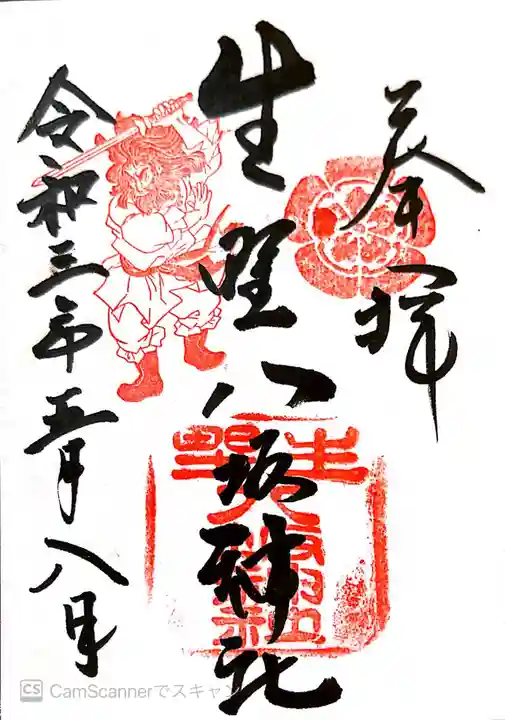 奉拝
生野八坂神社
令和三年五月八日
CS CamScannerでスキャン